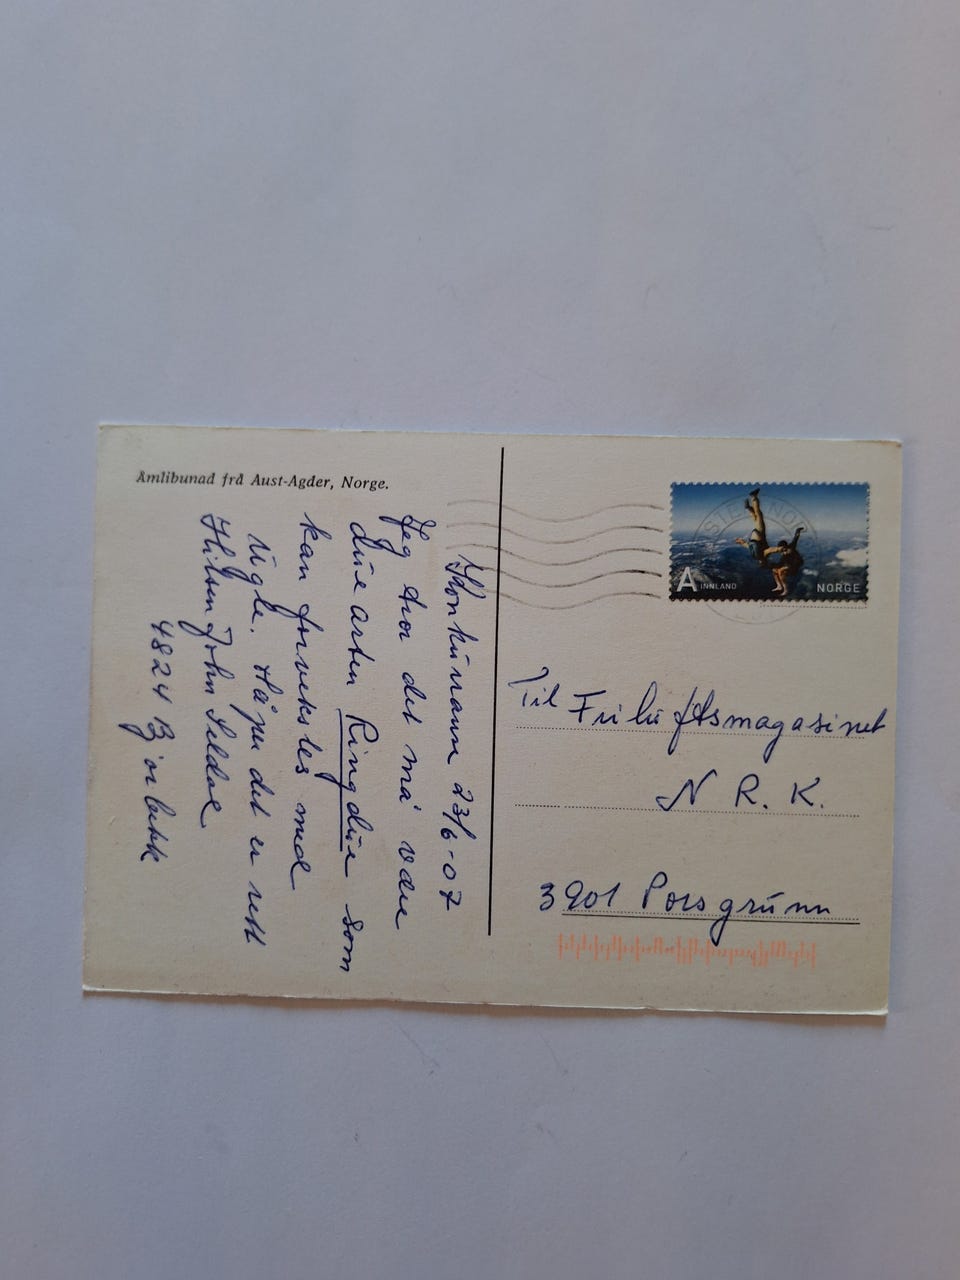 Åmlibunad frå Aust-Agder, Norge.
Konkuranse 23/6-07
Jeg tror det må være
due arten Ringdue som
kan forveksles med
Ugle. Håper det er rett
Hilsen John Seldal
4824 Bjorbekk
A INNLAND NORGE
Til Friluftsmagasinet
N R. K.
3901 Porsgrunn